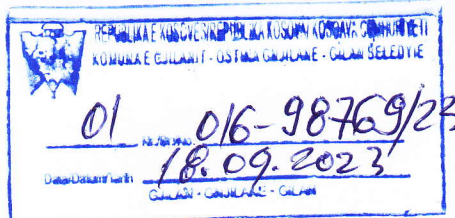 REPUBLIKA E KOSOVËS/REPUBLIKA KOSOVA/KOSOVA CUMHURİYETİ
KOMUNA E GJILANIT - OPŠTINA GNJILANE - GİLAN BELEDİYE
01 Nr./Br./No. 016-98769/23
Data/Datum/Tarih 18.09.2023
GJILAN - GNJILANE - GILAN